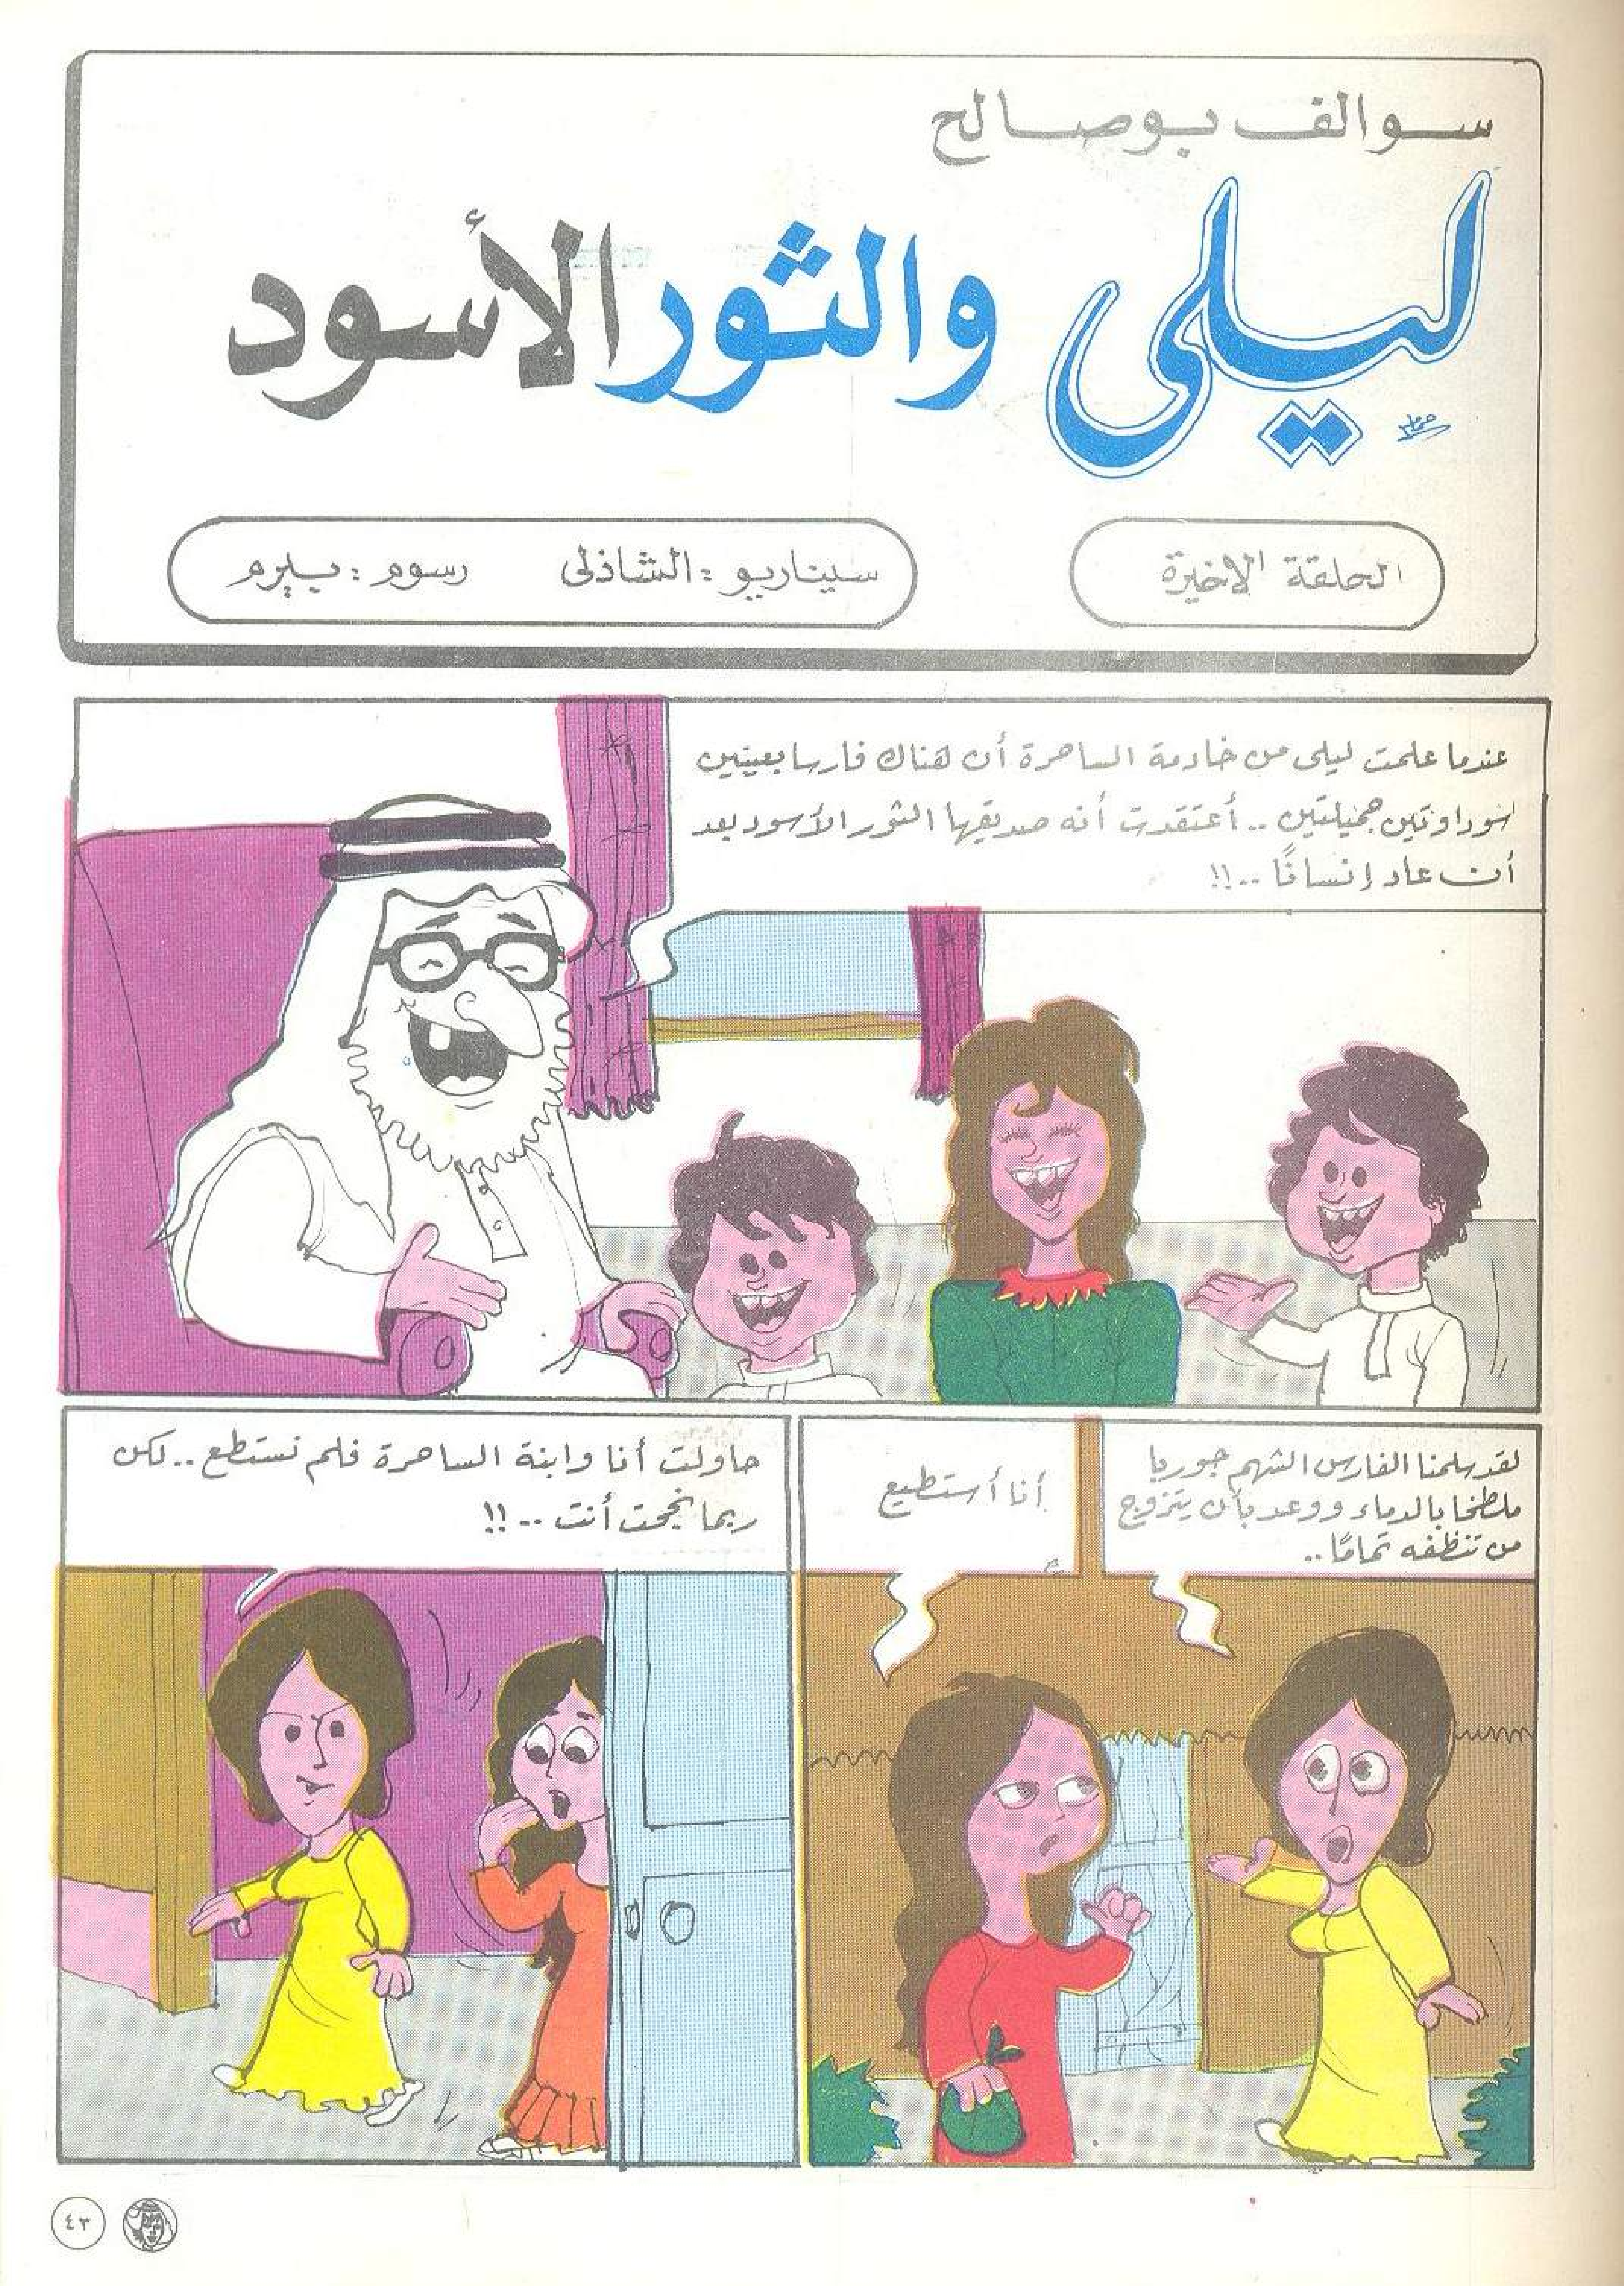 سوالف بوصالح
ليلى والثور الأسود
الحلقة الاخيرة
سيناريو : الشاذلى رسوم : بيرم
عندما علمت ليلى من خادمة الساحرة أن هناك فارسا بعينين
سوداوتين جميلتين .. أعتقدت أنه صديقها الثور الأسود بعد
أن عاد إنسانًا ..!!
لقد سلمنا الفارس الشهم جوربا
ملطخا بالدماء ووعد بأن يتزوج
من تنظفه تمامًا ..
أنا أستطيع
حاولت أنا وابنة الساحرة فلم نستطع .. لكن
ربما نجحت أنت ..!!
٤٣